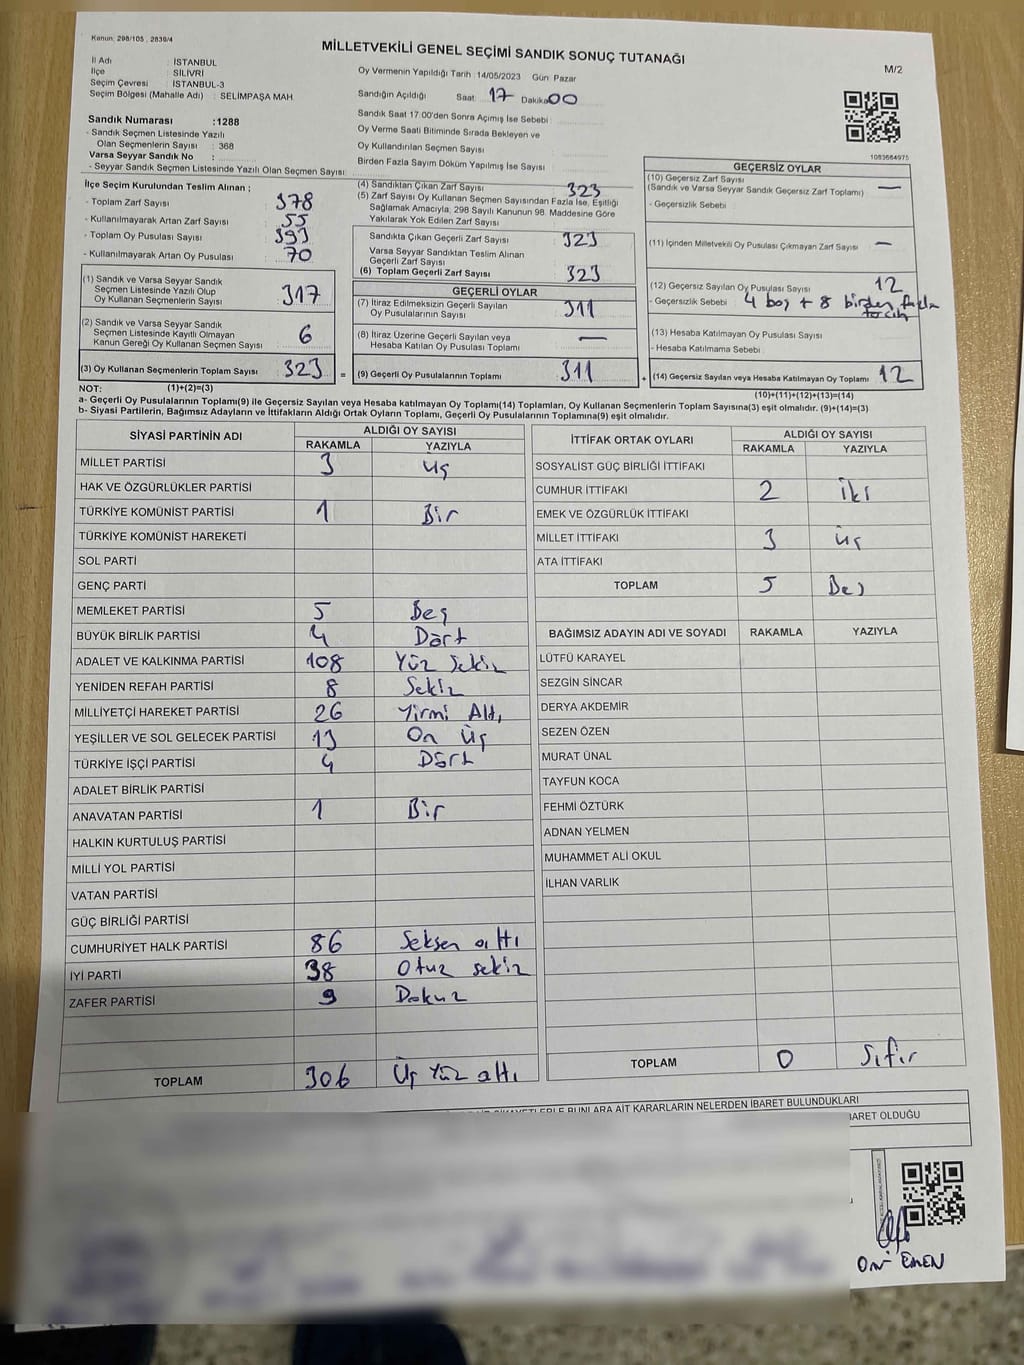 Kanun: 298/105 , 2839/4
MİLLETVEKİLİ GENEL SEÇİMİ SANDIK SONUÇ TUTANAĞI
M/2
İl Adı : İSTANBUL
İlçe : SİLİVRİ
Seçim Çevresi : İSTANBUL-3
Seçim Bölgesi (Mahalle Adı) : SELİMPAŞA MAH
Sandık Numarası :1288
- Sandık Seçmen Listesinde Yazılı
Olan Seçmenlerin Sayısı : 368
Varsa Seyyar Sandık No :
- Seyyar Sandık Seçmen Listesinde Yazılı Olan Seçmen Sayısı:
Oy Vermenin Yapıldığı Tarih :14/05/2023 Gün: Pazar
Sandığın Açıldığı Saat: 17 Dakika: 00
Sandık Saat 17:00'den Sonra Açımış İse Sebebi :
Oy Verme Saati Bitiminde Sırada Bekleyen ve
Oy Kullandırılan Seçmen Sayısı :
Birden Fazla Sayım Döküm Yapılmış İse Sayısı :
1083684975
İlçe Seçim Kurulundan Teslim Alınan ;
- Toplam Zarf Sayısı : 378
- Kullanılmayarak Artan Zarf Sayısı : 55
- Toplam Oy Pusulası Sayısı : 393
- Kullanılmayarak Artan Oy Pusulası : 70
(1) Sandık ve Varsa Seyyar Sandık
Seçmen Listesinde Yazılı Olup
Oy Kullanan Seçmenlerin Sayısı : 317
(2) Sandık ve Varsa Seyyar Sandık
Seçmen Listesinde Kayıtlı Olmayan
Kanun Gereği Oy Kullanan Seçmen Sayısı : 6
(3) Oy Kullanan Seçmenlerin Toplam Sayısı : 323 =
(4) Sandıktan Çıkan Zarf Sayısı : 323
(5) Zarf Sayısı Oy Kullanan Seçmen Sayısından Fazla İse, Eşitliği
Sağlamak Amacıyla, 298 Sayılı Kanunun 98. Maddesine Göre
Yakılarak Yok Edilen Zarf Sayısı :
Sandıkta Çıkan Geçerli Zarf Sayısı : 323
Varsa Seyyar Sandıktan Teslim Alınan
Geçerli Zarf Sayısı :
(6) Toplam Geçerli Zarf Sayısı : 323
GEÇERLİ OYLAR
(7) İtiraz Edilmeksizin Geçerli Sayılan
Oy Pusulalarının Sayısı : 311
(8) İtiraz Üzerine Geçerli Sayılan veya
Hesaba Katılan Oy Pusulası Toplamı : —
(9) Geçerli Oy Pusulalarının Toplamı : 311 +
GEÇERSİZ OYLAR
(10) Geçersiz Zarf Sayısı : —
(Sandık ve Varsa Seyyar Sandık Geçersiz Zarf Toplamı)
- Geçersizlik Sebebi :
(11) İçinden Milletvekili Oy Pusulası Çıkmayan Zarf Sayısı : —
(12) Geçersiz Sayılan Oy Pusulası Sayısı : 12
- Geçersizlik Sebebi : 4 boş + 8 birden fazla
tercih
(13) Hesaba Katılmayan Oy Pusulası Sayısı :
- Hesaba Katılmama Sebebi :
(14) Geçersiz Sayılan veya Hesaba Katılmayan Oy Toplamı : 12
NOT: (1)+(2)=(3) (10)+(11)+(12)+(13)=(14)
a- Geçerli Oy Pusulalarının Toplamı(9) ile Geçersiz Sayılan veya Hesaba katılmayan Oy Toplamı(14) Toplamları, Oy Kullanan Seçmenlerin Toplam Sayısına(3) eşit olmalıdır. (9)+(14)=(3)
b- Siyasi Partilerin, Bağımsız Adayların ve İttifakların Aldığı Ortak Oyların Toplamı, Geçerli Oy Pusulalarının Toplamına(9) eşit olmalıdır.
SİYASİ PARTİNİN ADI ALDIĞI OY SAYISI
RAKAMLA YAZIYLA
MİLLET PARTİSİ 3 üç
HAK VE ÖZGÜRLÜKLER PARTİSİ
TÜRKİYE KOMÜNİST PARTİSİ 1 Bir
TÜRKİYE KOMÜNİST HAREKETİ
SOL PARTİ
GENÇ PARTİ
MEMLEKET PARTİSİ 5 Beş
BÜYÜK BİRLİK PARTİSİ 4 Dört
ADALET VE KALKINMA PARTİSİ 108 Yüz Sekiz
YENİDEN REFAH PARTİSİ 8 Sekiz
MİLLİYETÇİ HAREKET PARTİSİ 26 Yirmi Altı
YEŞİLLER VE SOL GELECEK PARTİSİ 13 On Üç
TÜRKİYE İŞÇİ PARTİSİ 4 Dört
ADALET BİRLİK PARTİSİ
ANAVATAN PARTİSİ 1 Bir
HALKIN KURTULUŞ PARTİSİ
MİLLİ YOL PARTİSİ
VATAN PARTİSİ
GÜÇ BİRLİĞİ PARTİSİ
CUMHURİYET HALK PARTİSİ 86 Seksen altı
İYİ PARTİ 38 Otuz sekiz
ZAFER PARTİSİ 9 Dokuz
TOPLAM 306 Üç Yüz altı
İTTİFAK ORTAK OYLARI ALDIĞI OY SAYISI
RAKAMLA YAZIYLA
SOSYALİST GÜÇ BİRLİĞİ İTTİFAKI
CUMHUR İTTİFAKI 2 İki
EMEK VE ÖZGÜRLÜK İTTİFAKI
MİLLET İTTİFAKI 3 üç
ATA İTTİFAKI
TOPLAM 5 Beş
BAĞIMSIZ ADAYIN ADI VE SOYADI RAKAMLA YAZIYLA
LÜTFÜ KARAYEL
SEZGİN SİNCAR
DERYA AKDEMİR
SEZEN ÖZEN
MURAT ÜNAL
TAYFUN KOCA
FEHMİ ÖZTÜRK
ADNAN YELMEN
MUHAMMET ALİ OKUL
İLHAN VARLIK
TOPLAM 0 Sıfır
BUNLARA AİT KARARLARIN NELERDEN İBARET BULUNDUKLARI
İBARET OLDUĞU
EMEN